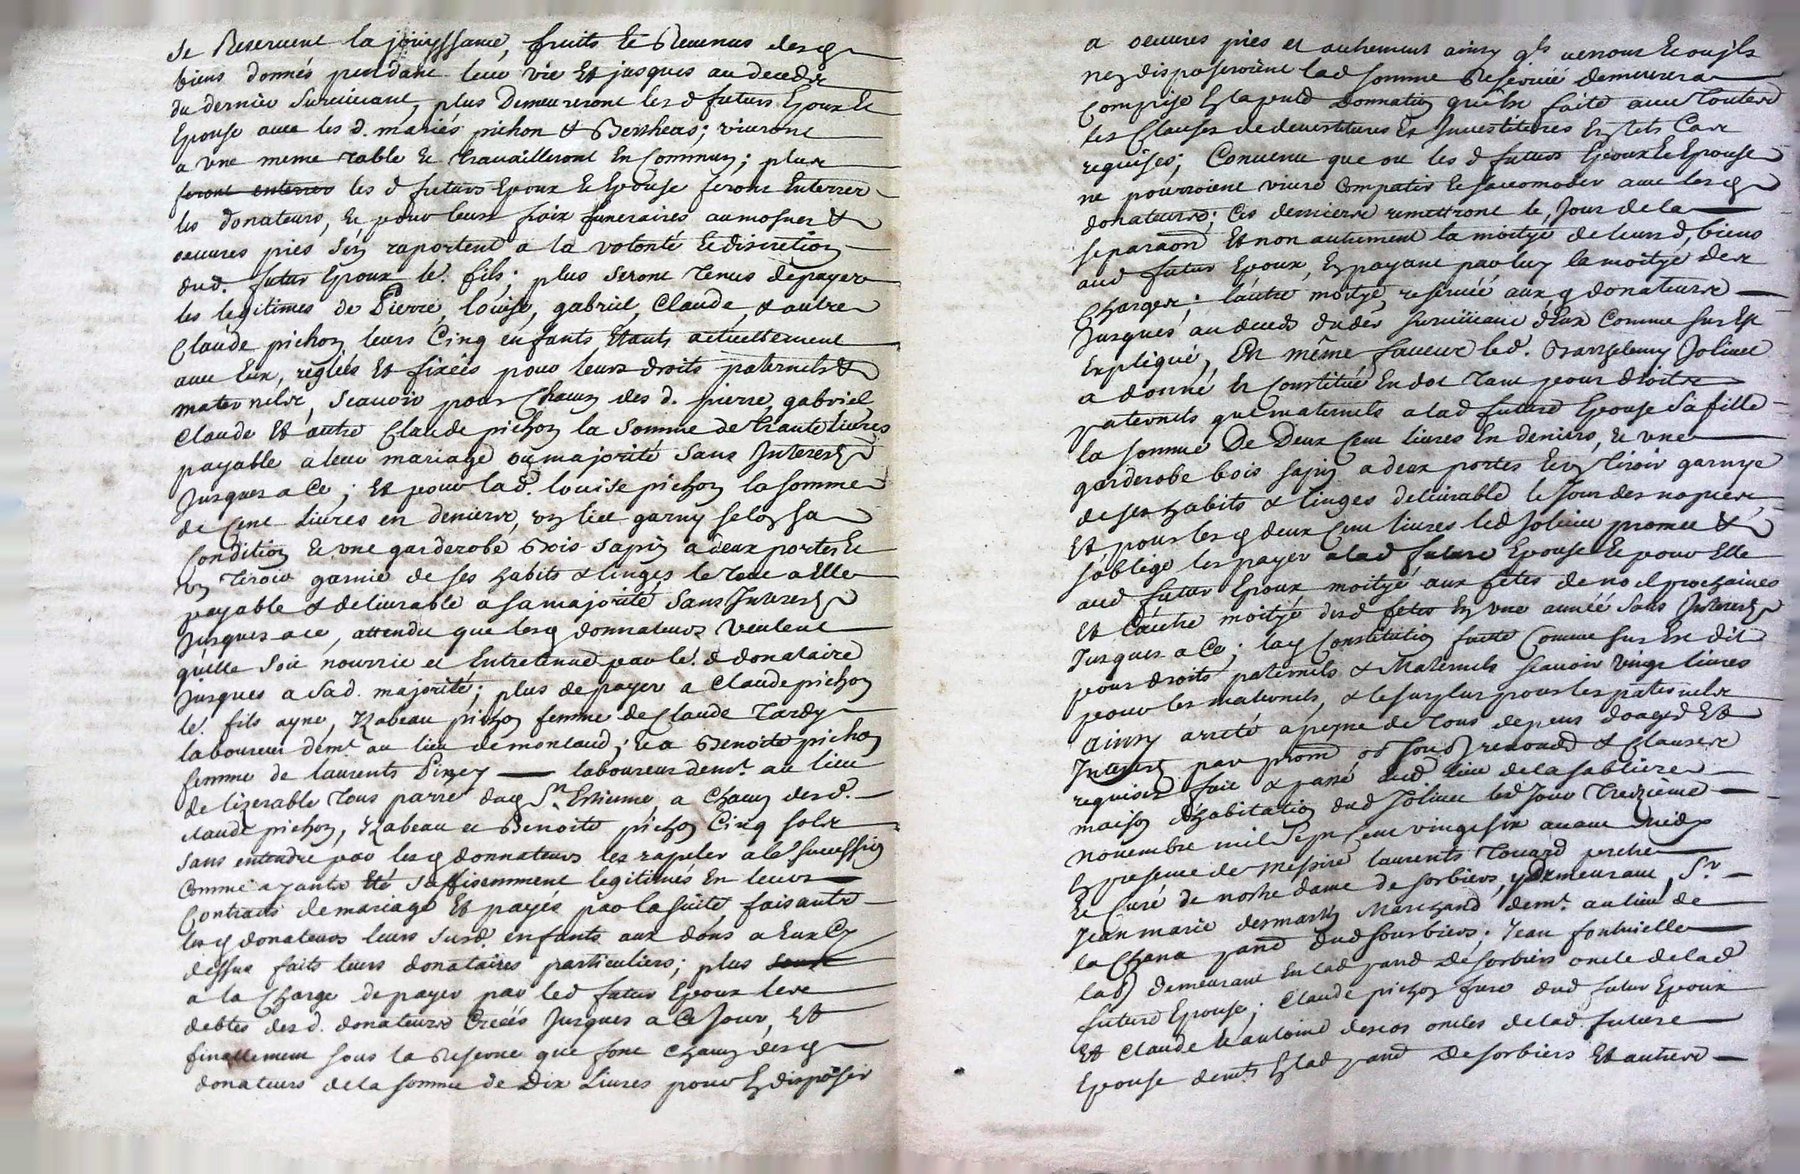 se Reservent la jouyssance, fruits et Revenus desq
biens donnés pendant leur vie Et jusques au decedz
du dernier Survivant, plus Demeureront les d futurs Epoux Et
Epouse avec les d. mariés pichon & Bertheas; vivront
a vne meme table Et travailleront En Commun; plus
seront enterrer les d futurs Epoux Et Epouse feront Enterrer
les donateurs, Et pour leurs fraix funeraires aumosnes &
oeuvres pies s'en raportent a la volonté Et discretion
dud. futur Epoux le. fils; plus seront tenus de payer
les legitimes de Pierre, louise, gabriel, Claude, & autre
Claude pichon leurs Cinq enfants Etants actuellement
avec Eux, réglées Et fixées pour leurs droits paternels &
maternels, scavoir pour Chacun des d. pierre gabriel
Claude Et autre Claude pichon la Somme de trante livres
payable a leur mariage ou majorité Sans Interest
Jusques a Ce; Et pour lad. louise pichon la somme
de Cent Livres en deniers, vn lict garny selon sa
Condition Et vne garderobe Bois sapin a deux portes Et
vn tiroir garnie de ses habits & linges le tout a Elle
payable & delivrable a sa majorité Sans Interest
Jusques a ce, attendu que lesq donnateurs veulent
qu'elle soit nourrie et Entretenue par le. d donataire
Jusques a Sad. majorité; plus de payer a Claude pichon
le. fils ayné, Izabeau pichon femme de Claude Tardy
laboureur demt. au lieu de montaud, Et a Benoite pichon
femme de laurents Pinzey laboureur demt. au lieu
de lizerable tous parre daq St. Etienne, a Chacun des d.
claude pichon, Izabeau et Benoite pichon Cinq sols
sans entendre par lesq donnateurs les rapeler a le. Succession
Comme ayants Eté Suffisemment legitimés En leurs
Contrats de mariage Et payés par la Suite, faisants
lesq donateurs leurs susd. enfants aux dons a Eux Cy
dessus faits leurs donataires particuliers; plus
a la Charge de payer par led futur Epoux les
debtes des d. donateurs Creées Jusques a Ce Jour, Et
finallement sous la Reserve que font Chacun desq
donateurs de la somme de Dix Livres pour En disposer
a oeuvres pies et autrement ainsy qls venont Et ou jls
n'en disposeroient lad somme Reservée demeurera
Comprise En la pnte Donnation qui Est faite avec toutes
les Clauses de devestitures Et Investitures En tels Cas
requises; Convenu que ou les d futurs Epoux Et Epouse
ne pourroient vivre Compatir Et sacomoder avec lesq
donateurs; Ces derniers remettront le, Jour de la
separaon Et non autrement la moityé de leurs d, biens
aud futur Epoux, En payant par luy la moityé des
Charges; l'autre moityé reservée auxq donateurs
Jusques au decedz du der survivant d'Eux Comme sus Est
Expliqué, En même faveur led. Barthelemy Jolivet
a donné Et Constitué En dot tant pour droits
paternels que maternels a lad future Epouse Sa fille
la somme De Deux Cent livres En deniers, Et vne
garderobe bois sapin a deux portes Et vn tiroir garnye
de ses habits & linges delivrable le Jour des nopces
Et pour lesq deux Cent livres led Jolivet promet &
s'oblige les payer a lad future Epouse Et pour Elle
aud futur Epoux, moityé aux fêtes de noel prochaines
Et l'autre moityé dud fetes En vne année Sans Interest
Jusques a Ce; laq Constitution faite Comme sus Est dit
pour droits paternels & Maternels scavoir vingt livres
pour les maternels, & le surplus pour les paternels
Ainsy arreté a peyne de tous depens domages Et
Interest par prom ob soub renond & Clauses
requises fait & passé aud lieu de la sabliere
maison d'habitation dud Jolivet led Jour Treizieme
novembre mil sept Cent vingt six avant midy
En presence de Messire laurents Touard prebtre
Et Curé de notre dame de sorbiers, y demeurant, Sr.
Jean marie desmartin Marchand demt. au lieu de
la Chana pand dud sourbiers; Jean fontvielle
lad demeurant En lad pand De sorbiers oncle de lad
future Epouse; Claude pichon frere dud futur Epoux
Et Claude Et antoine descos oncles de lad. future
Epouse demts En lad pand De sorbiers Et autres